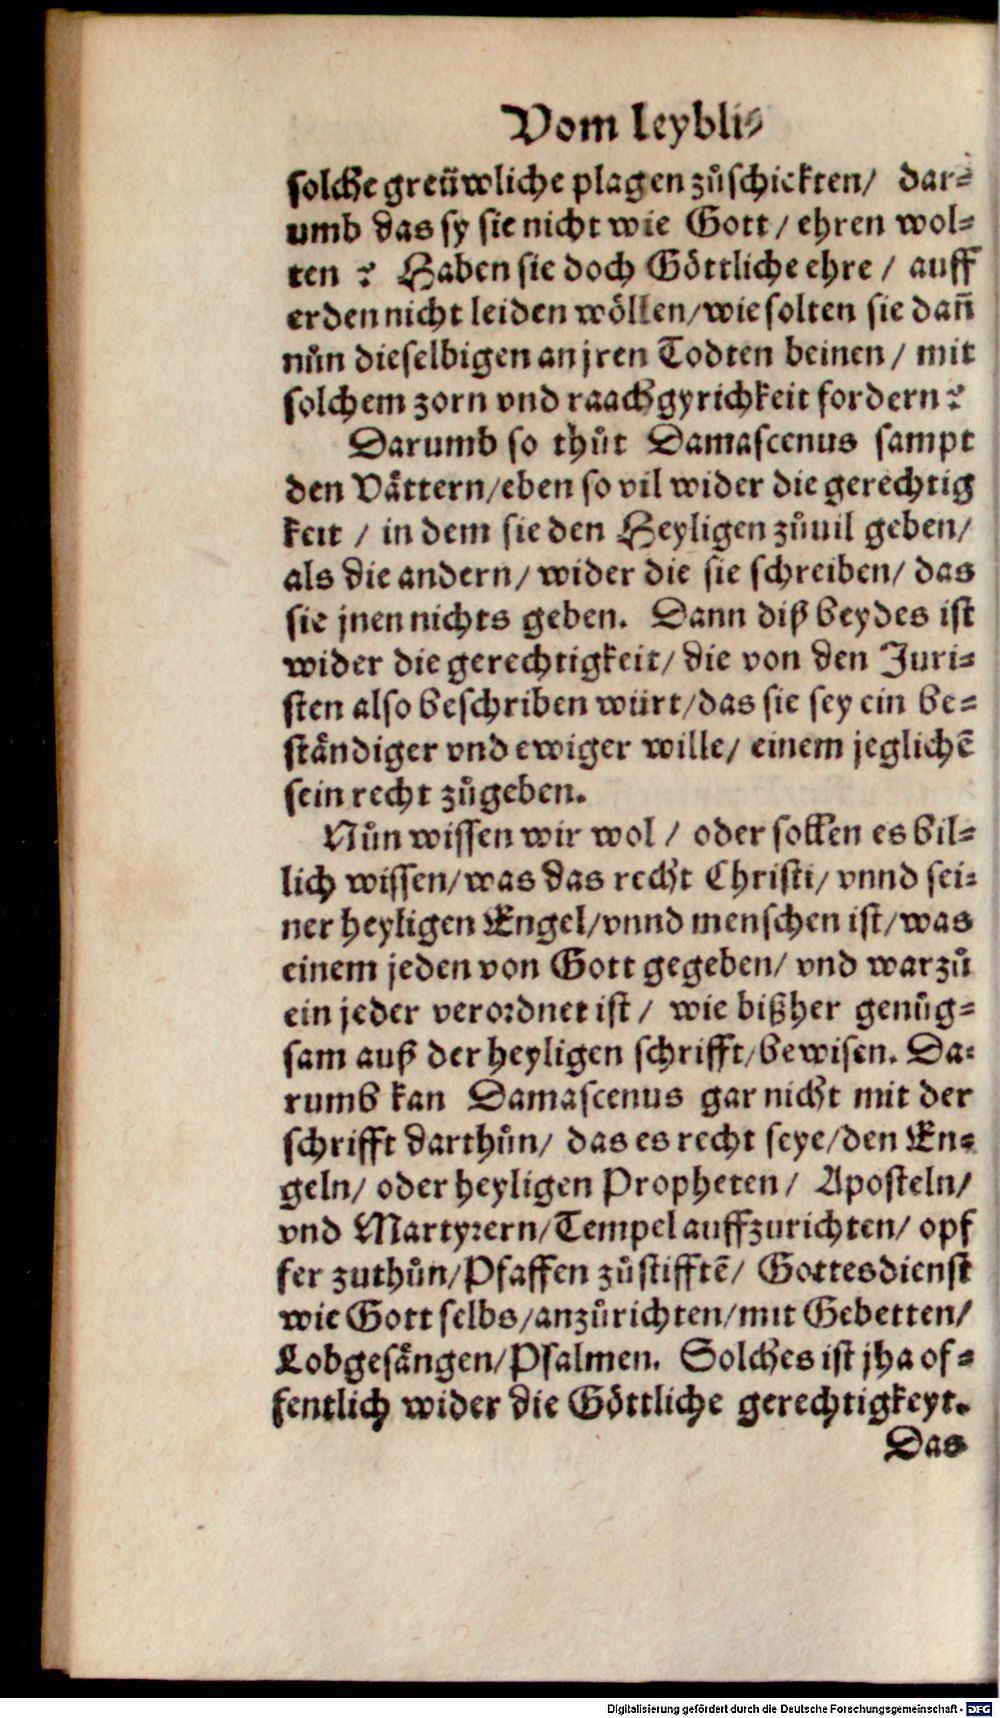 Vom leybli⸗
solche greüwliche plagen zůschickten/ dar⸗
umb das sy sie nicht wie Gott/ ehren wol⸗
ten? Haben sie doch Göttliche ehre/ auff
erden nicht leiden wöllen/wie solten sie dañ
nůn dieselbigen an jren Todten beinen/ mit
solchem zorn vnd raachgyrichkeit fordern?
Darumb so thůt Damascenus sampt
den Vättern/eben so vil wider die gerechtig
keit/ in dem sie den Heyligen zůuil geben/
als die andern/ wider die sie schreiben/ das
sie jnen nichts geben. Dann diß beydes ist
wider die gerechtigkeit/ die von den Juri⸗
sten also beschriben würt/das sie sey ein be⸗
ständiger vnd ewiger wille/ einem jeglichē
sein recht zůgeben.
Nůn wissen wir wol/ oder sollen es bil⸗
lich wissen/was das recht Christi/ vnnd sei⸗
ner heyligen Engel/vnnd menschen ist/was
einem jeden von Gott gegeben/ vnd warzů
ein jeder verordnet ist/ wie bißher genůg⸗
sam auß der heyligen schrifft/bewisen. Da⸗
rumb kan Damascenus gar nicht mit der
schrifft darthůn/ das es recht seye/den En⸗
geln/ oder heyligen Propheten/ Aposteln/
vnd Martyrern/Tempel auffzurichten/ opf
fer zuthůn/Pfaffen zůstifftē/ Gottesdienst
wie Gott selbs/anzůrichten/mit Gebetten/
Lobgesängen/Psalmen. Solches ist jha of⸗
fentlich wider die Göttliche gerechtigkeyt.
Das
Digitalisierung gefördert durch die Deutsche Forschungsgemeinschaft - DFG